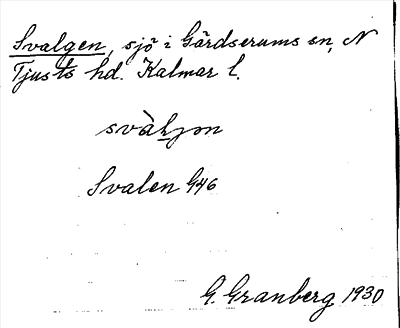 Svalgen, sjö i Gärdserums sn, N
Tjusts hd. Kalmar l.
svàljən
Svalen G46
G. Granberg 1930